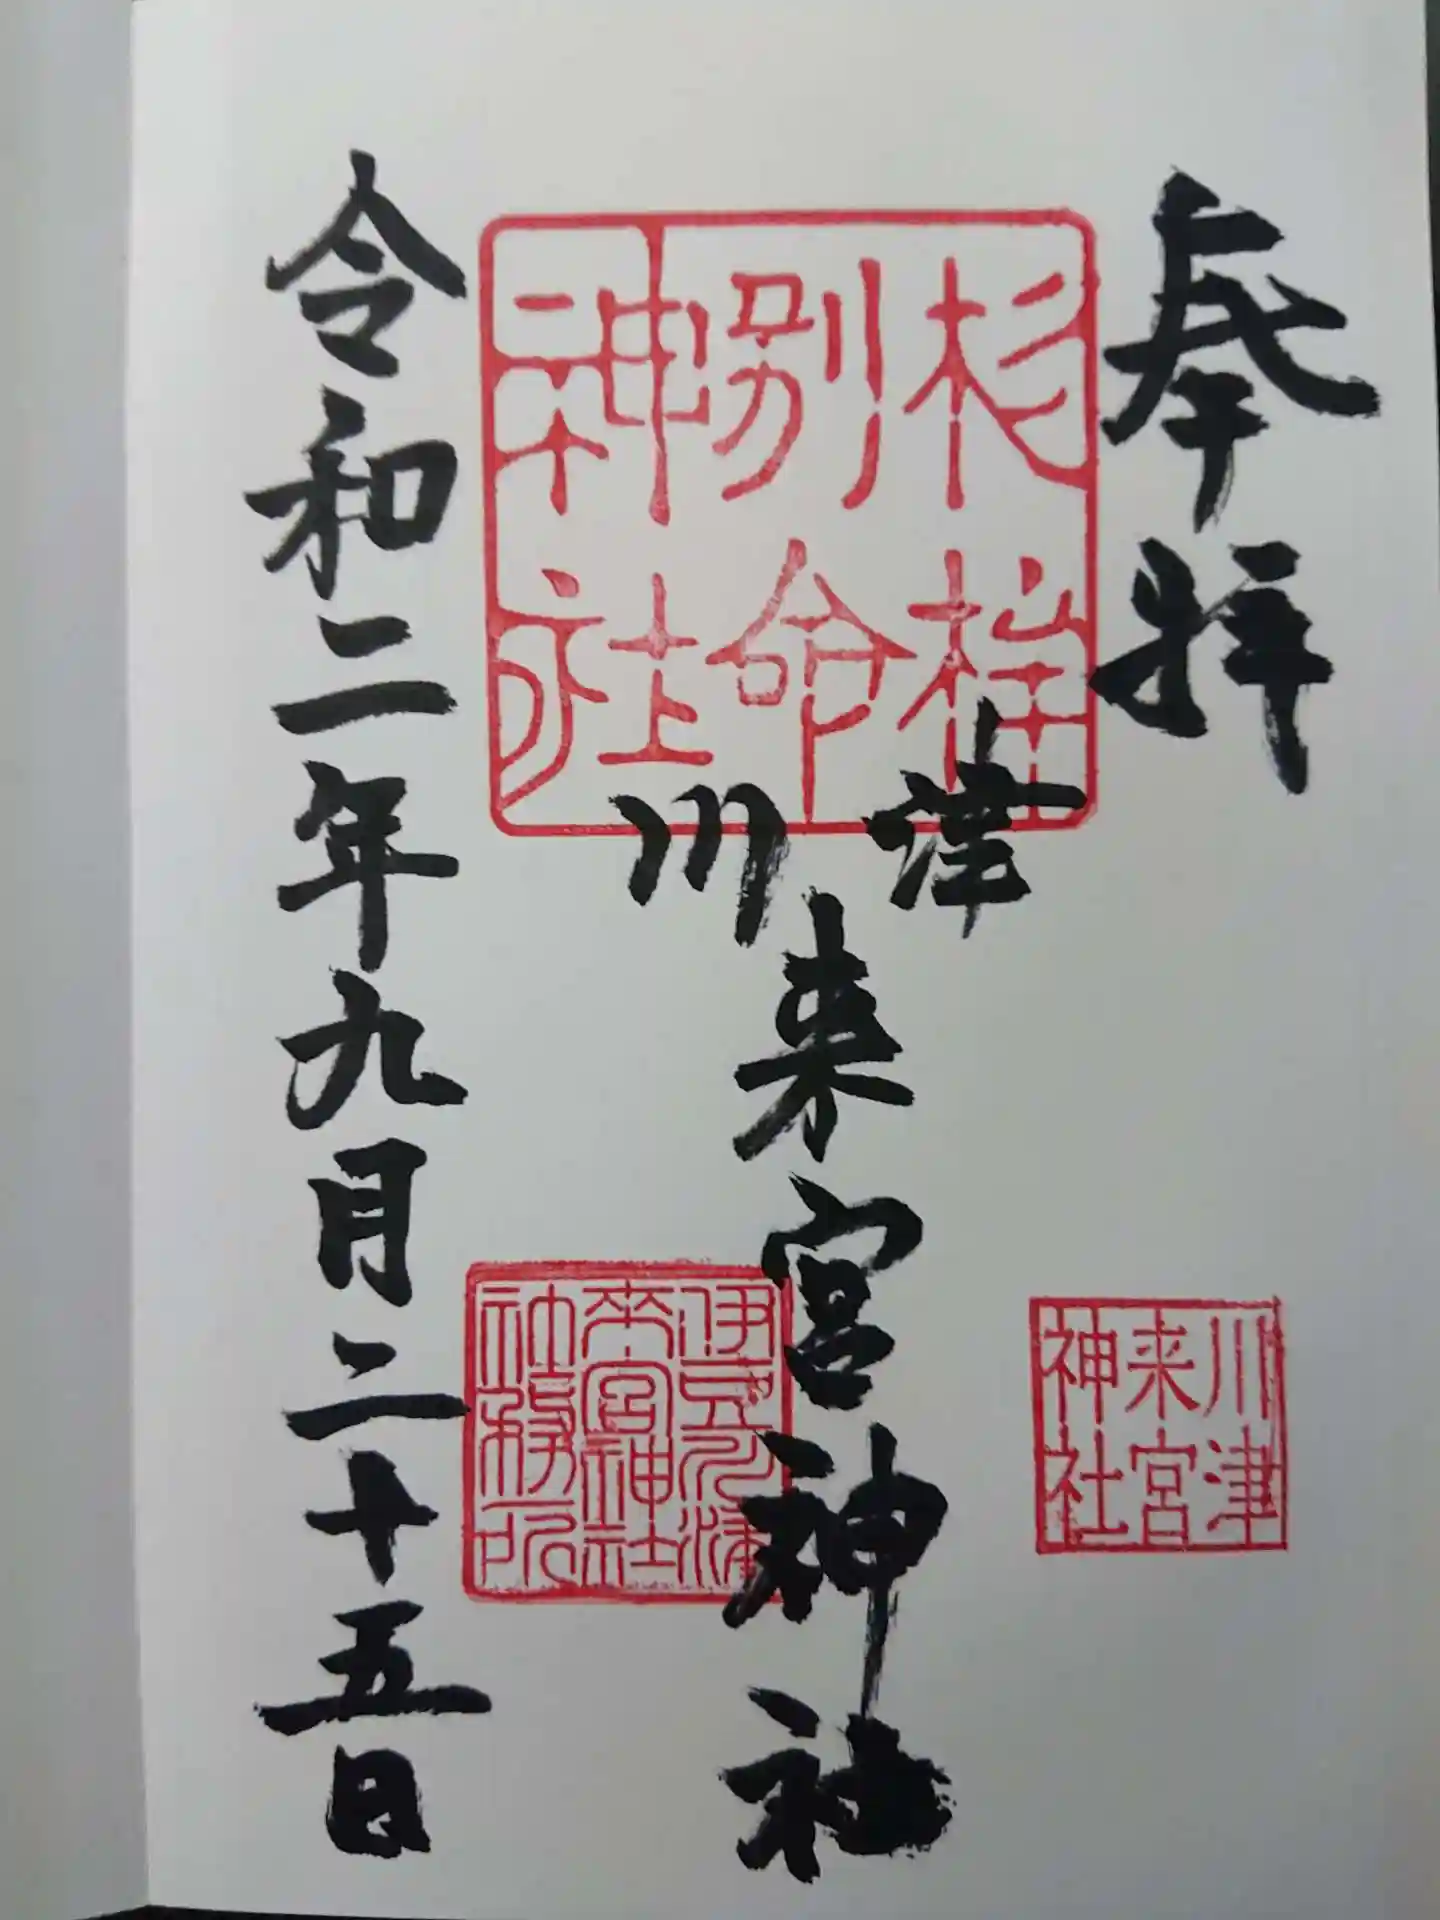 奉拝
杉桙
別命
神社
川津
来宮神社
川津
来宮
神社
伊豆川津
来宮神社
社務所
令和二年九月二十五日